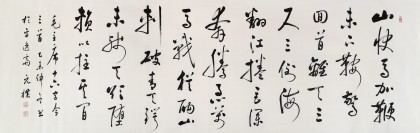 山快馬加鞭
未下鞍驚
回首離天三
尺三山倒海
翻江捲巨瀾
奔騰急萬
馬戰猶酣山
刺破青天鍔
未殘天欲墮
賴以拄其間
毛主席十六字令
三首乙未仲
於京西高元